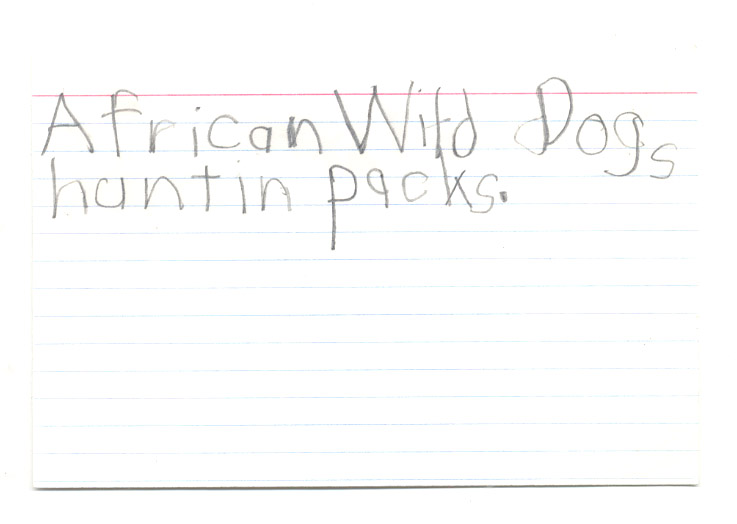 African Wild Dogs
hunt in packs.